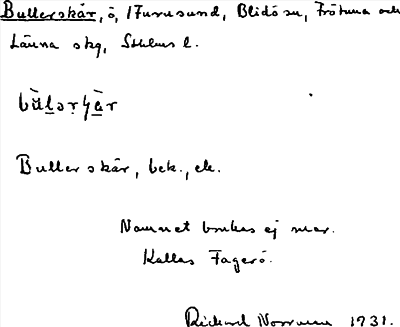 Bullerskär, ö, i Furusund, Blidö sn, Frötuna och
Länna skg, Sthlms l.
Bullerskär, bek., ek.
Namnet brukas ej mer.
Kallas Fagerö.
Rickard 1931.